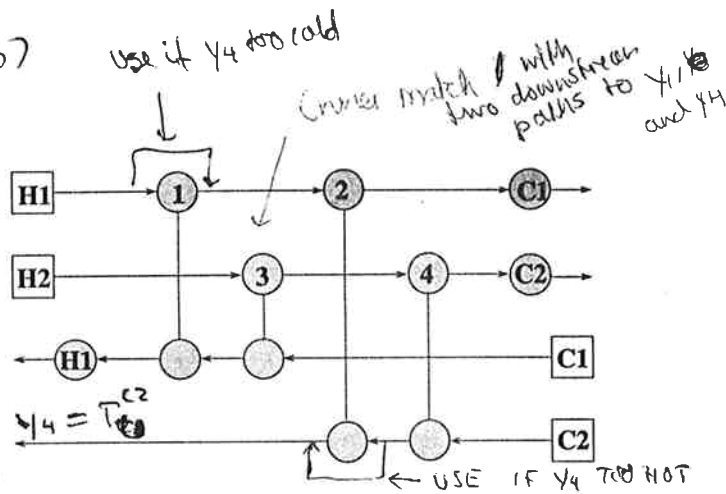 b)
use if y4 too cold
inner match with
two downstream
paths to y1,
and y4
H1 1 2 C1
H2 3 4 C2
H1 C1
y4 = T C2
C2
← USE IF Y4 TOO HOT